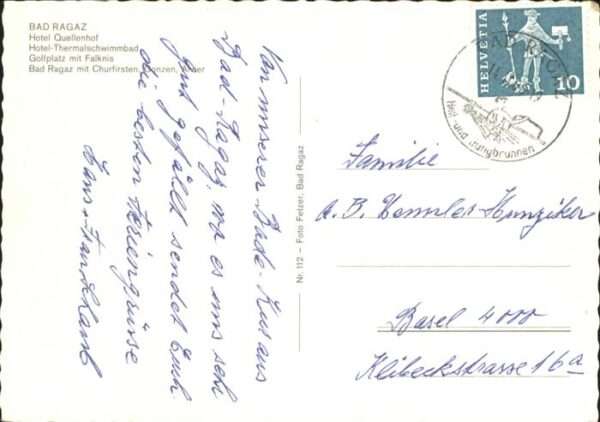 BAD RAGAZ
Hotel Quellenhof
Hotel-Thermalschwimmbad
Golfplatz mit Falknis
Bad Ragaz mit Churfirsten, Gonzen, Alvier
Von unserer Bade-Kur aus
Bad-Ragaz, wo es uns sehr
gut gefällt sendet Euch
die besten Feriengrüsse
Hans + Frau
Nr. 112 – Foto Fetzer, Bad Ragaz
HELVETIA
10
BAD RAGAZ
Heil- und Jungbrunnen
Familie
A. B. Hunziker
Basel 4000
Klibeckstrasse 16a